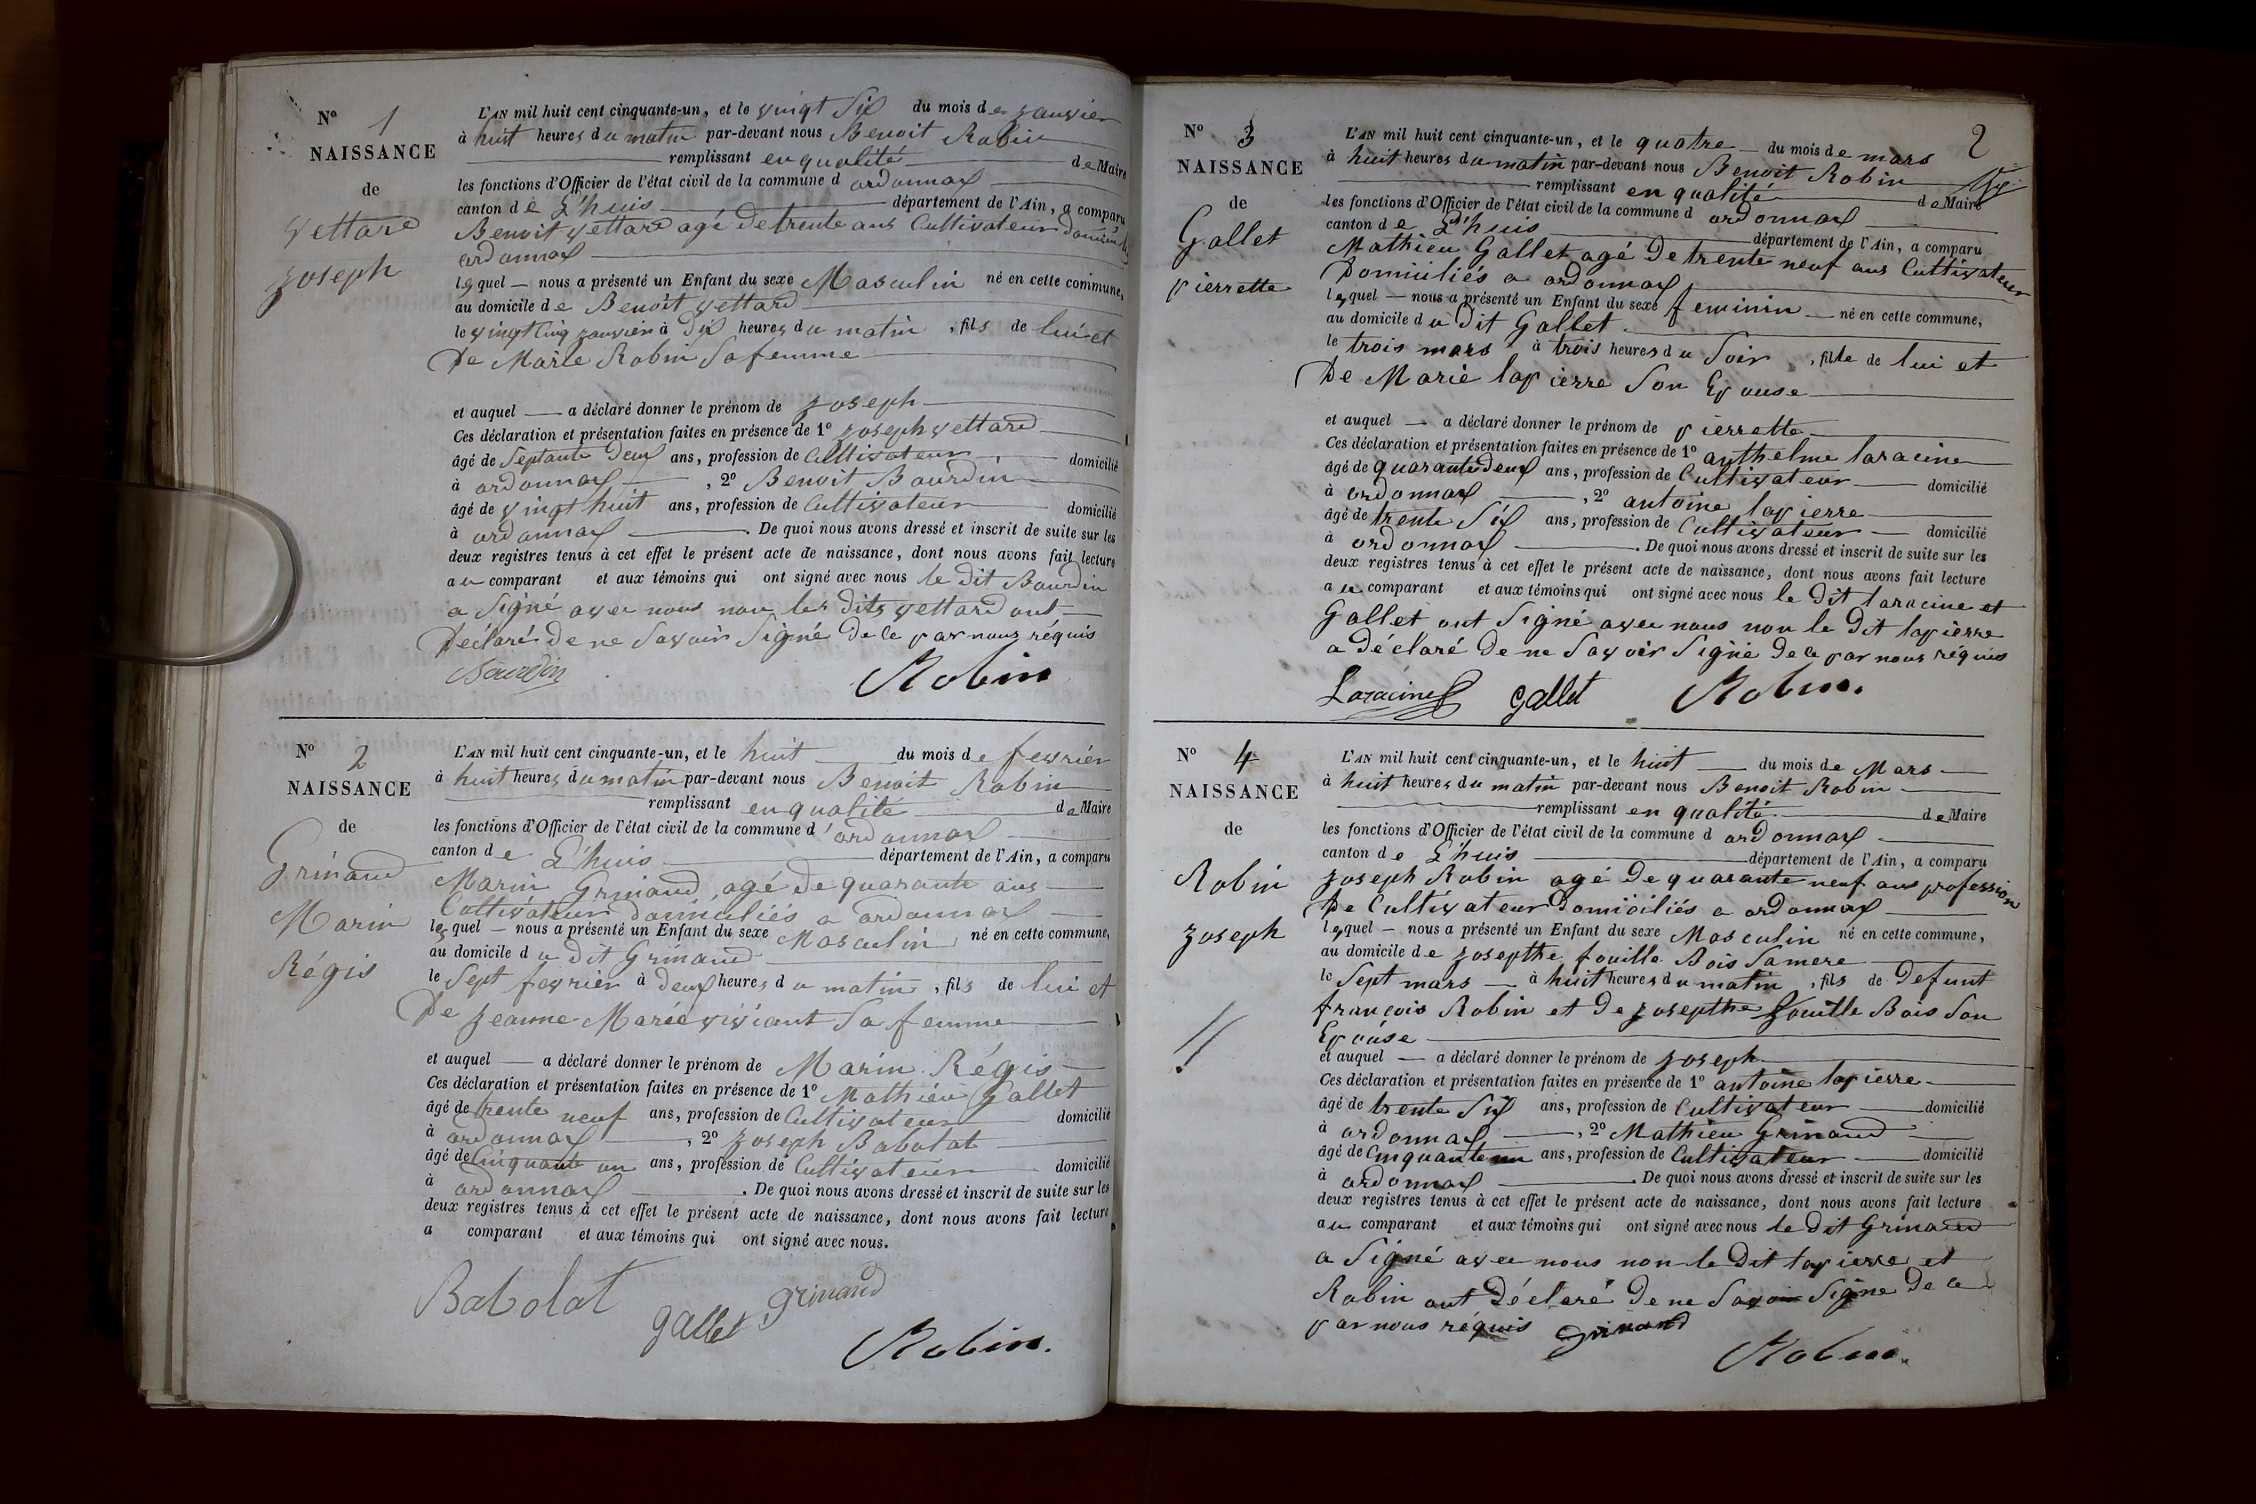 N° 1
NAISSANCE
de
Vettard
Joseph
L'AN mil huit cent cinquante-un, et le vingt Six du mois de janvier
à huit heures du matin par-devant nous Benoit Robin
remplissant en qualité de Maire
les fonctions d'Officier de l'état civil de la commune d ordonnax
canton de L'huis département de l'Ain, a comparu
Benoit vettard agé de trente ans Cultivateur domicilié
ordonnax
lequel — nous a présenté un Enfant du sexe Masculin né en cette commune,
au domicile de Benoit vettard
le vingt Cinq janvier à Dix heures du matin, fils de lui et
De Marie Robin Sa femme
et auquel — a déclaré donner le prénom de Joseph
Ces déclaration et présentation faites en présence de 1° Joseph vettard
âgé de Septante Deux ans, profession de Cultivateur, domicilié
à ordonnax, 2° Benoit Bourdin
âgé de vingt huit ans, profession de Cultivateur domicilié
à ordonnax. De quoi nous avons dressé et inscrit de suite sur les
deux registres tenus à cet effet le présent acte de naissance, dont nous avons fait lecture
au comparant et aux témoins qui ont signé avec nous le Dit Bourdin
a Signé avec nous non les Dits vettard ont
Déclaré de ne Savoir Signé de ce par nous réquis
Bourdin Robin
N° 2
NAISSANCE
de
Grinand
Marin
Régis
L'AN mil huit cent cinquante-un, et le huit du mois de fevrier
à huit heures du matin par-devant nous Benoit Robin
remplissant en qualité de Maire
les fonctions d'Officier de l'état civil de la commune d'ordonnax
canton de L'huis département de l'Ain, a comparu
Marin Grinand, agé de quarante ans
Cultivateur domiciliés a ordonnax
lequel — nous a présenté un Enfant du sexe Masculin né en cette commune,
au domicile du dit Grinand
le Sept fevrier à deux heures du matin, fils de lui et
De Jeanne Marie viviant Sa femme
et auquel — a déclaré donner le prénom de Marin Régis
Ces déclaration et présentation faites en présence de 1° Mathieu Gallet
âgé de trente neuf ans, profession de Cultivateur domicilié
à ordonnax, 2° Joseph Babolat
âgé de Cinquante un ans, profession de Cultivateur domicilié
à ordonnax. De quoi nous avons dressé et inscrit de suite sur les
deux registres tenus à cet effet le présent acte de naissance, dont nous avons fait lecture
a comparant et aux témoins qui ont signé avec nous.
Babolat gallet grinand
Robin.
2
N° 3
NAISSANCE
de
Gallet
pierrette
L'AN mil huit cent cinquante-un, et le quatre du mois de mars
à huit heures du matin par-devant nous Benoit Robin
remplissant en qualité de Maire
les fonctions d'Officier de l'état civil de la commune d ordonnax
canton de L'huis département de l'Ain, a comparu
Mathieu Gallet agé de trente neuf ans Cultivateur
Domiciliés a ordonnax
lequel — nous a présenté un Enfant du sexe feminin — né en cette commune,
au domicile du Dit Gallet
le trois mars à trois heures du Soir, fille de lui et
De Marie lapierre Son Epouse
et auquel — a déclaré donner le prénom de pierrette
Ces déclaration et présentation faites en présence de 1° anthelme laracine
âgé de quarante deux ans, profession de Cultivateur domicilié
à ordonnax, 2° antoine lapierre
âgé de trente Six ans, profession de Cultivateur domicilié
à ordonnax. De quoi nous avons dressé et inscrit de suite sur les
deux registres tenus à cet effet le présent acte de naissance, dont nous avons fait lecture
au comparant et aux témoins qui ont signé avec nous le Dit laracine et
Gallet ont Signé avec nous non le Dit lapierre
a déclaré De ne Savoir Signe de ce par nous réquis
Laracine gallet Robin.
N° 4
NAISSANCE
de
Robin
Joseph
L'AN mil huit cent cinquante-un, et le huit du mois de Mars
à huit heures du matin par-devant nous Benoit Robin
remplissant en qualité de Maire
les fonctions d'Officier de l'état civil de la commune d ordonnax
canton de L'huis département de l'Ain, a comparu
Joseph Robin agé de quarante neuf ans profession
De Cultivateur Domiciliés a ordonnax
lequel — nous a présenté un Enfant du sexe Masculin né en cette commune,
au domicile de Josepthe fouille Bois Sa mere
le Sept mars — à huit heures du matin, fils de Defunt
françois Robin et De Josepthe fouille Bois Son
Epouse
et auquel — a déclaré donner le prénom de Joseph
Ces déclaration et présentation faites en présence de 1° antoine lapierre
âgé de trente Six ans, profession de Cultivateur domicilié
à ordonnax, 2° Mathieu Grinand
âgé de Cinquante un ans, profession de Cultivateur domicilié
à ordonnax. De quoi nous avons dressé et inscrit de suite sur les
deux registres tenus à cet effet le présent acte de naissance, dont nous avons fait lecture
au comparant et aux témoins qui ont signé avec nous le Dit Grinand
a Signé avec nous non le Dit lapierre et
Robin ont Déclaré De ne Savoir Signe De ce
par nous réquis Grinand
Robin.